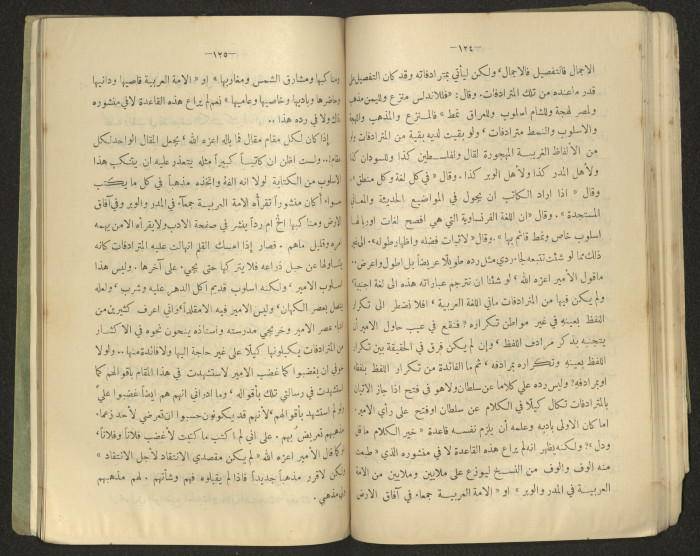 —١٢٤—
الاجمال فالتفصيل فالاجمال، ولكن ليأتي بمترادفاته وقد كان التفصيل على
قدر ماعنده من تلك المترادفات. وقال: «فللاندلس منزع ولليمن مذهب
ولمصر لهجة وللشام اسلوب وللعراق نمط» فالمنزع والمذهب واللهجة
والاسلوب والنمط مترادفات، ولو بقيت لديه بقية من المترادفات ولو
من الألفاظ الغريبة المهجورة لقال ولفلسطين كذا وللسودان كذا
ولأهل المدر كذا ولأهل الوبر كذا. وقال «في كل لغة وكل منطق»
وقال «اذا اراد الكاتب ان يجول في المواضيع الحديثة والمعاني
المستجدة». وقال «ان اللغة الفرنساوية التي هي افصح لغات اوربا لها
اسلوب خاص ونمط قائم بها». وقال «لاثبات فضله واظهار طوله». الى غير
ذلك مما لو شئت تتبعه لجاء ردي مثل رده طويلاً عريضاً بل اطول واعرض..
ماقول الامير اعزه الله، لو شئنا ان نترجم عباراته هذه الى لغة اجنبية
ولم يكن فيها من المترادفات مافي اللغة العربية، افلا نضطر الى تكرار
اللفظ بعينه في غير مواطن تكراره؟ فنقع في عيب حاول الامير أن
يتجنبه بذكر مرادف اللفظ، وإن لم يكن فرق في الحقيقة بين تكرار
اللفظ بعينه وتكراره بمرادفه، ثم ما الفائدة من تكرار اللفظ بلفظه
او بمرادفه؟ وليس رده علي كلاماً عن سلطان ولاهو في فتح اذا جاز الاتيان
بالمترادفات تكال كيلاً في الكلام عن سلطان او فتح على رأي الامير.
اما كان الاولى بادبه وعلمه أن يلزم نفسه قاعدة «خير الكلام ماقل
ودل»؟ ولكنه يظهر انه لم يراع هذه القاعدة لا في منشوره الذي «طبعت
منه الوف والوف من النسخ ليوزع على ملايين وملايين من الامة
العربية في المدر والوبر» او «الامة العربية جمعاء في آفاق الارض
—١٢٥—
ومناكبها ومشارق الشمس ومغاربها» او «الامة العربية قاصيها ودانيها
وحاضرها وباديها وخاصيها وعاميها» نعم لم يراع هذه القاعدة لا في منشوره
ذاك ولا في رده هذا..
إذا كان لكل مقام مقال فما باله اعزه الله، يجعل المقال الواحد لكل
مقام!.. ولست اظن ان كاتباً كبيراً مثله يتعذر عليه ان يتنكب هذا
الاسلوب من الكتابة لولا انه الفة واتخذه مذهباً في كل ما يكتب
سواء أكان منشوراً تقرأه الامة العربية جمعاء في المدر والوبر وفي آفاق
الارض ومناكبها الخ ام رداً ينشر في صفحة الادب ولا يقرأه الا من يهمه
امره وقليل ماهم. فصار إذا امسك القلم انهالت عليه المترادفات كأنه
يتناولها عن حبل ذراعه فلا يتركها حتى يجيء على آخرها. وليس هذا
اسلوب الامير، ولكنه اسلوب قديم اكل الدهر عليه وشرب، ولعله
يتصل بعصر الكهان، وليس الامير فيه الا مقلداً، واني اعرف كثيرين من
ادباء عصر الامير وخريجي مدرسته واستاذه ينحون نحوه في الاكثار
من المترادفات يكيلونها كيلاً على غير حاجة اليها ولا فائدة منها.. ولولا
خوفي ان يغضبوا كما غضب الامير لاستشهدت في هذا المقام باقوالهم كما
استشهدت في رسالتي تلك بأقواله، وما ادراني انهم هم ايضاً غضبوا علي
ولم استشهد باقوالهم، لأنهم قد يكونون حسبوا ان تعرضي لأحد زعماء
مذهبهم تعريض بهم. على اني لم اكتب ما كتبت لأغضب فلاناً وفلاناً،
وكما قال الأمير اعزه الله «لم يكن مقصدي الانتقاد لأجل الانتقاد»
ولكن لاقرر مذهباً جديداً فاذا لم يقبلوه فهم وشأنهم. لهم مذهبهم
ولي مذهبي.